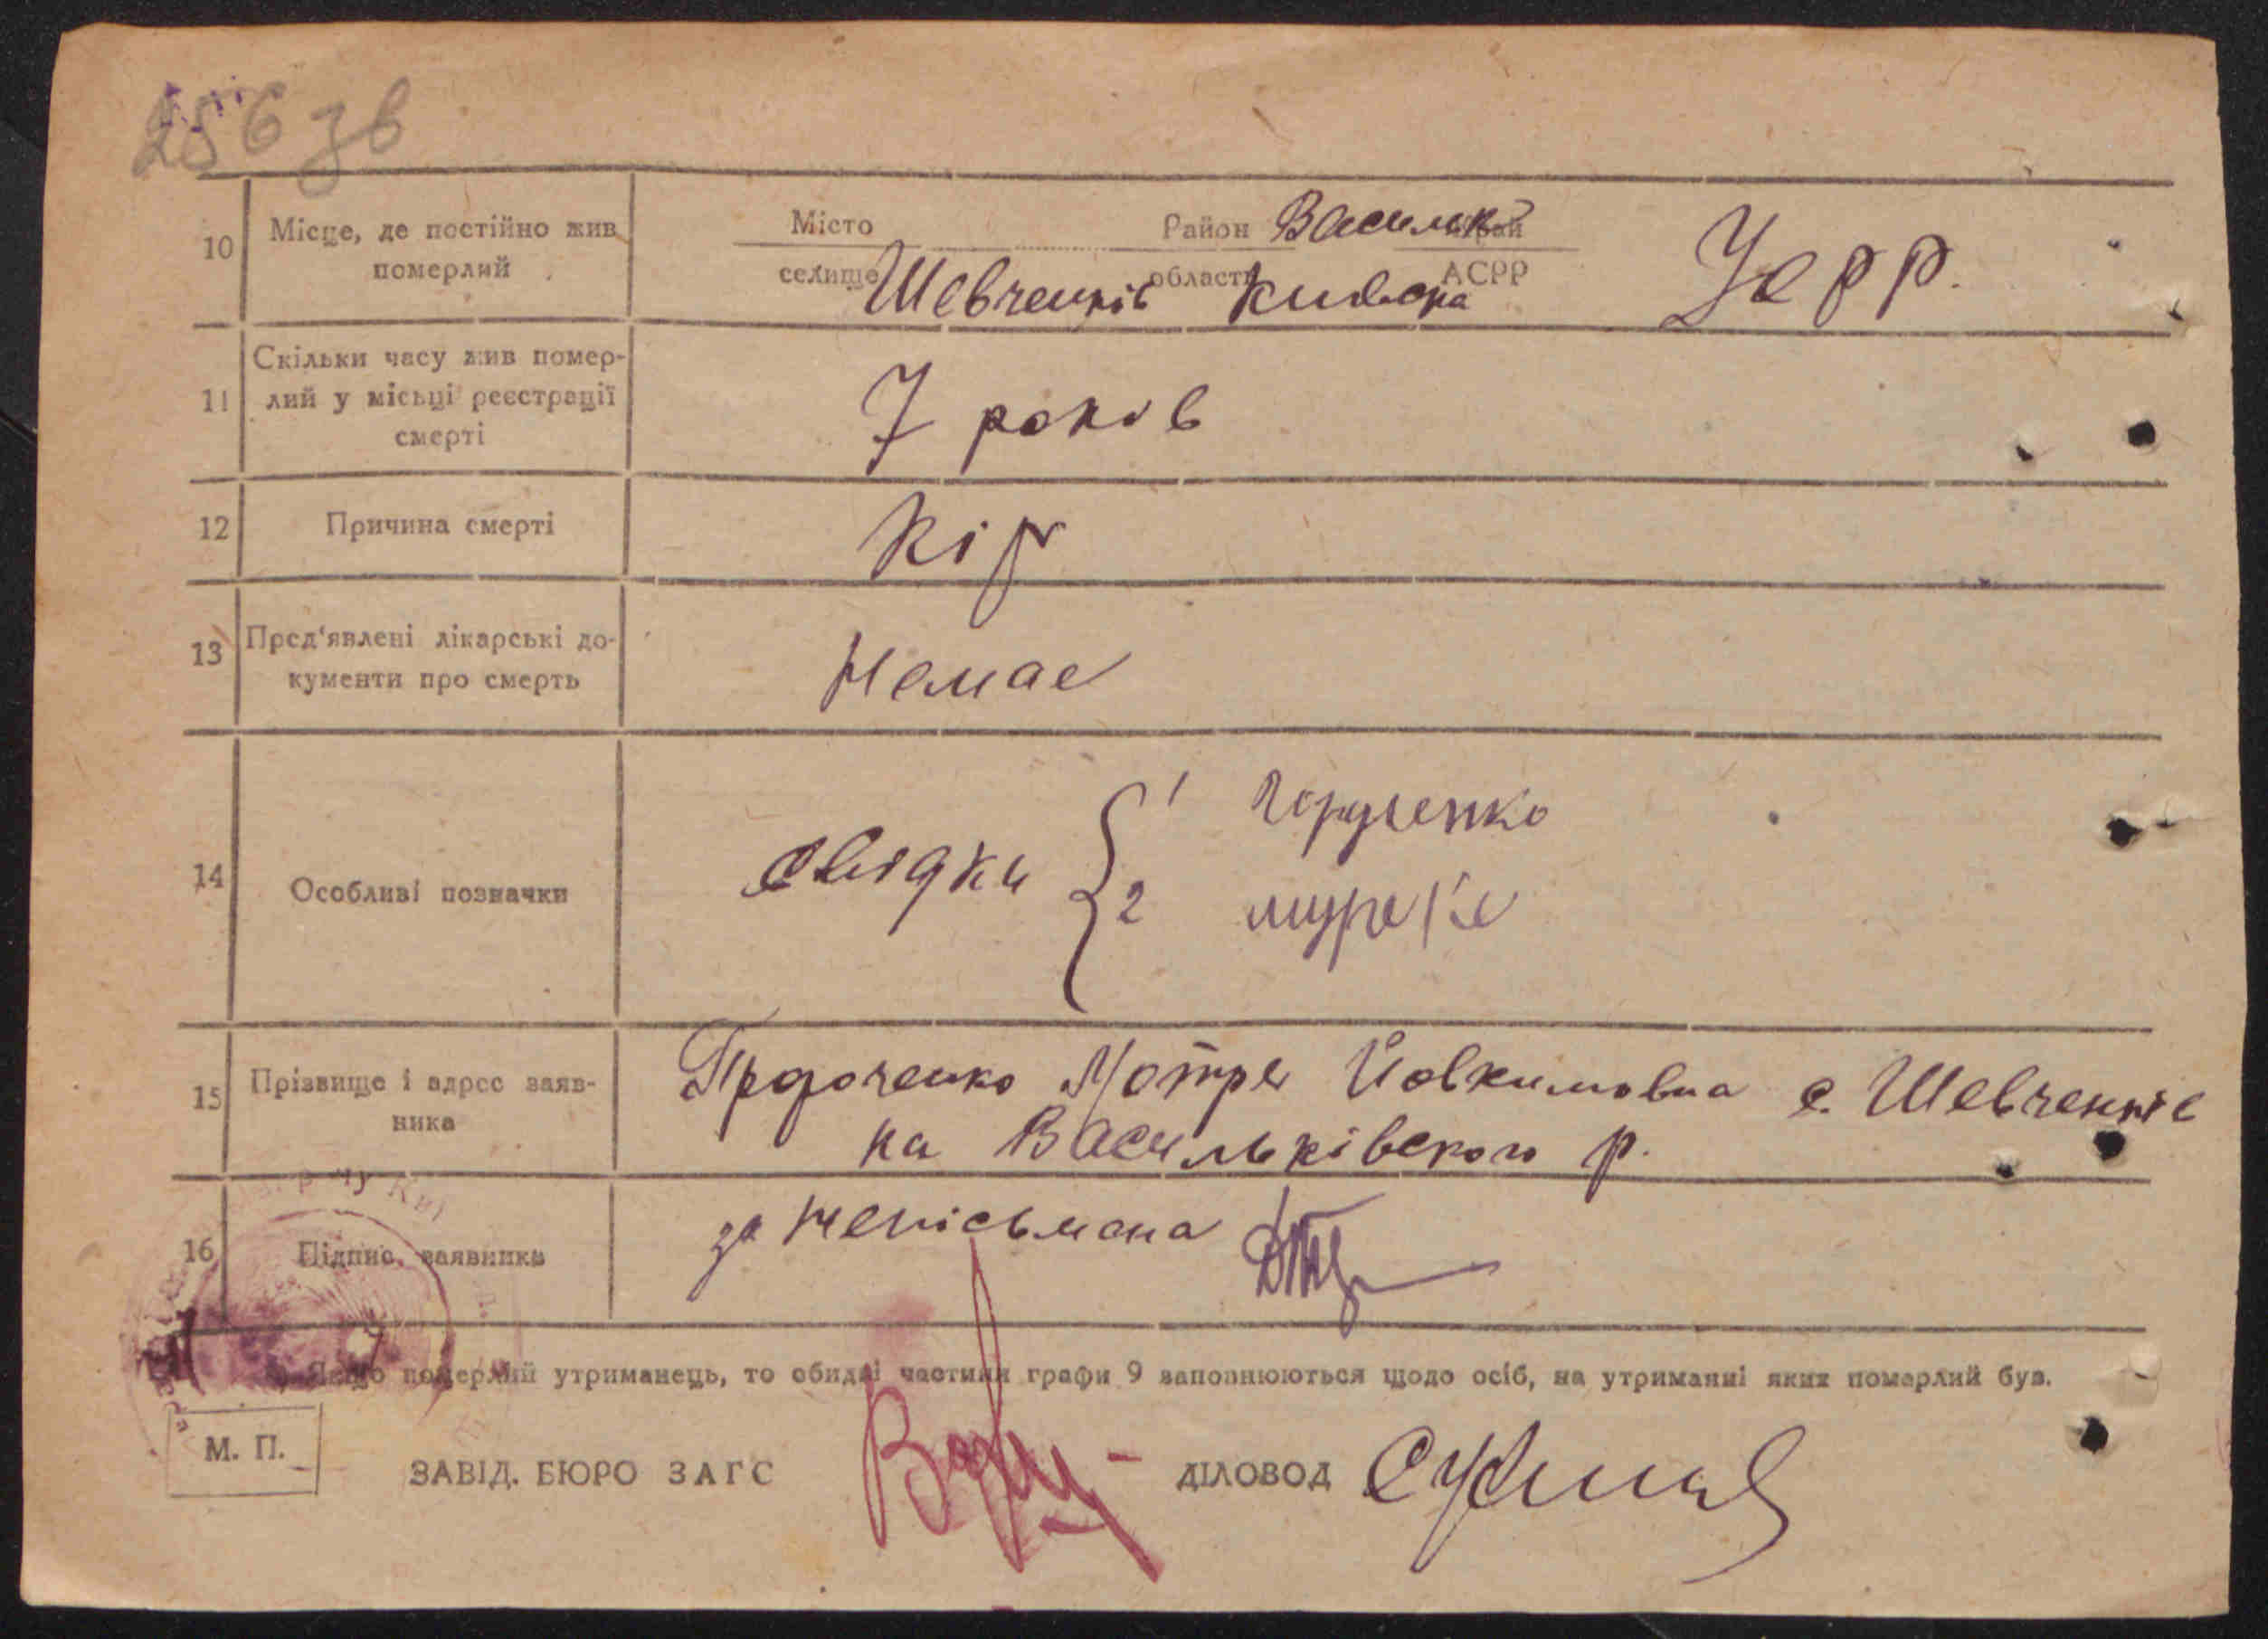 256 зв
10 Місце, де постійно жив померлий
Місто Район Васильк край
селище Шевченків область Київска АСРР УСРР.
11 Скільки часу жив помер-
лий у місьці реєстрації
смерті
7 років
12 Причина смерті Кір
13 Пред'явлені лікарські до-
кументи про смерть
Немає
14 Особливі позначки
свідки { 1
2
15 Прізвище і адрес заяв-
ника
Мотря Йовкимовна с. Шевченків
ка Васильківского р.
16 Підпис заявника за непісьмена
Якщо померлий утриманець, то обидві частини графи 9 заповнюються щодо осіб, на утриманні яких померлий був.
М. П.
ЗАВІД. БЮРО ЗАГС ДІЛОВОД